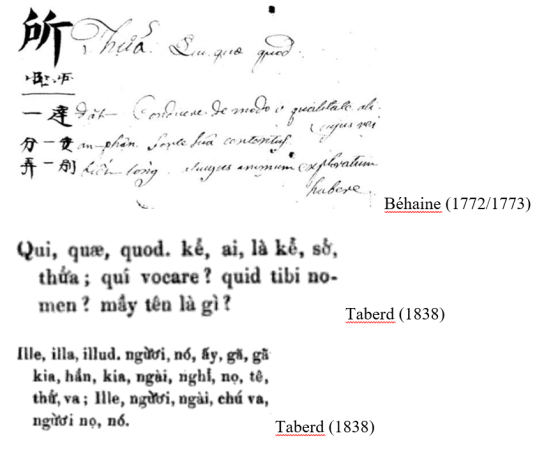 所 Thửa. Qui, quæ, quod.
一達 đặt de modo qualitate ali
cujus rei
分一 an phận. sorte sua contentus.
弄一別 biết lòng. animum exploratum
habere.
Béhaine (1772/1773)
Qui, quæ, quod. kẻ, ai, là kẻ, sở,
thửa ; quí vocare ? quid tibi no-
men ? mầy tên là gì ?
Taberd (1838)
Ille, illa, illud. người, nó, ấy, gã, gã
kia, hắn, kia, ngài, nghỉ, nọ, tê,
thử, va ; Ille, người, ngài, chú va,
người nọ, nó.
Taberd (1838)